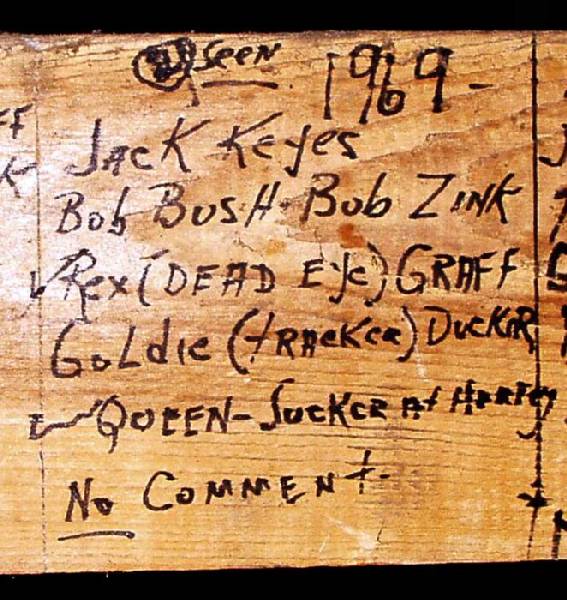 2 Seen 1969-
Jack Keyes
Bob Bush-Bob Zink
Rex (DEAD EYE) GRAFF
Goldie (tracker) Ducker
QUEEN-Sucker At Hearts
No COMMENT.